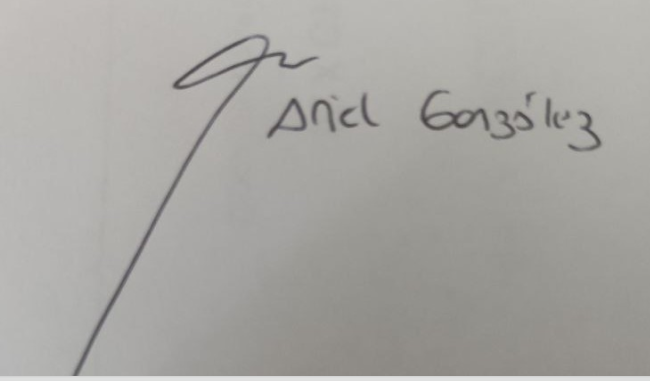 Ariel González